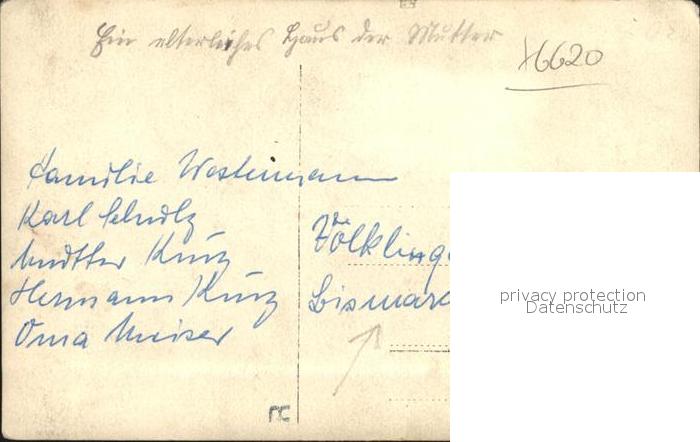 Ein elterliches Haus der Mutter
X6620
Familie Westermann
Karl Schulz
Mutter Kunz
Hermann Kunz
Oma Meiser
Völkling
Bismarc
privacy protection
Datenschutz